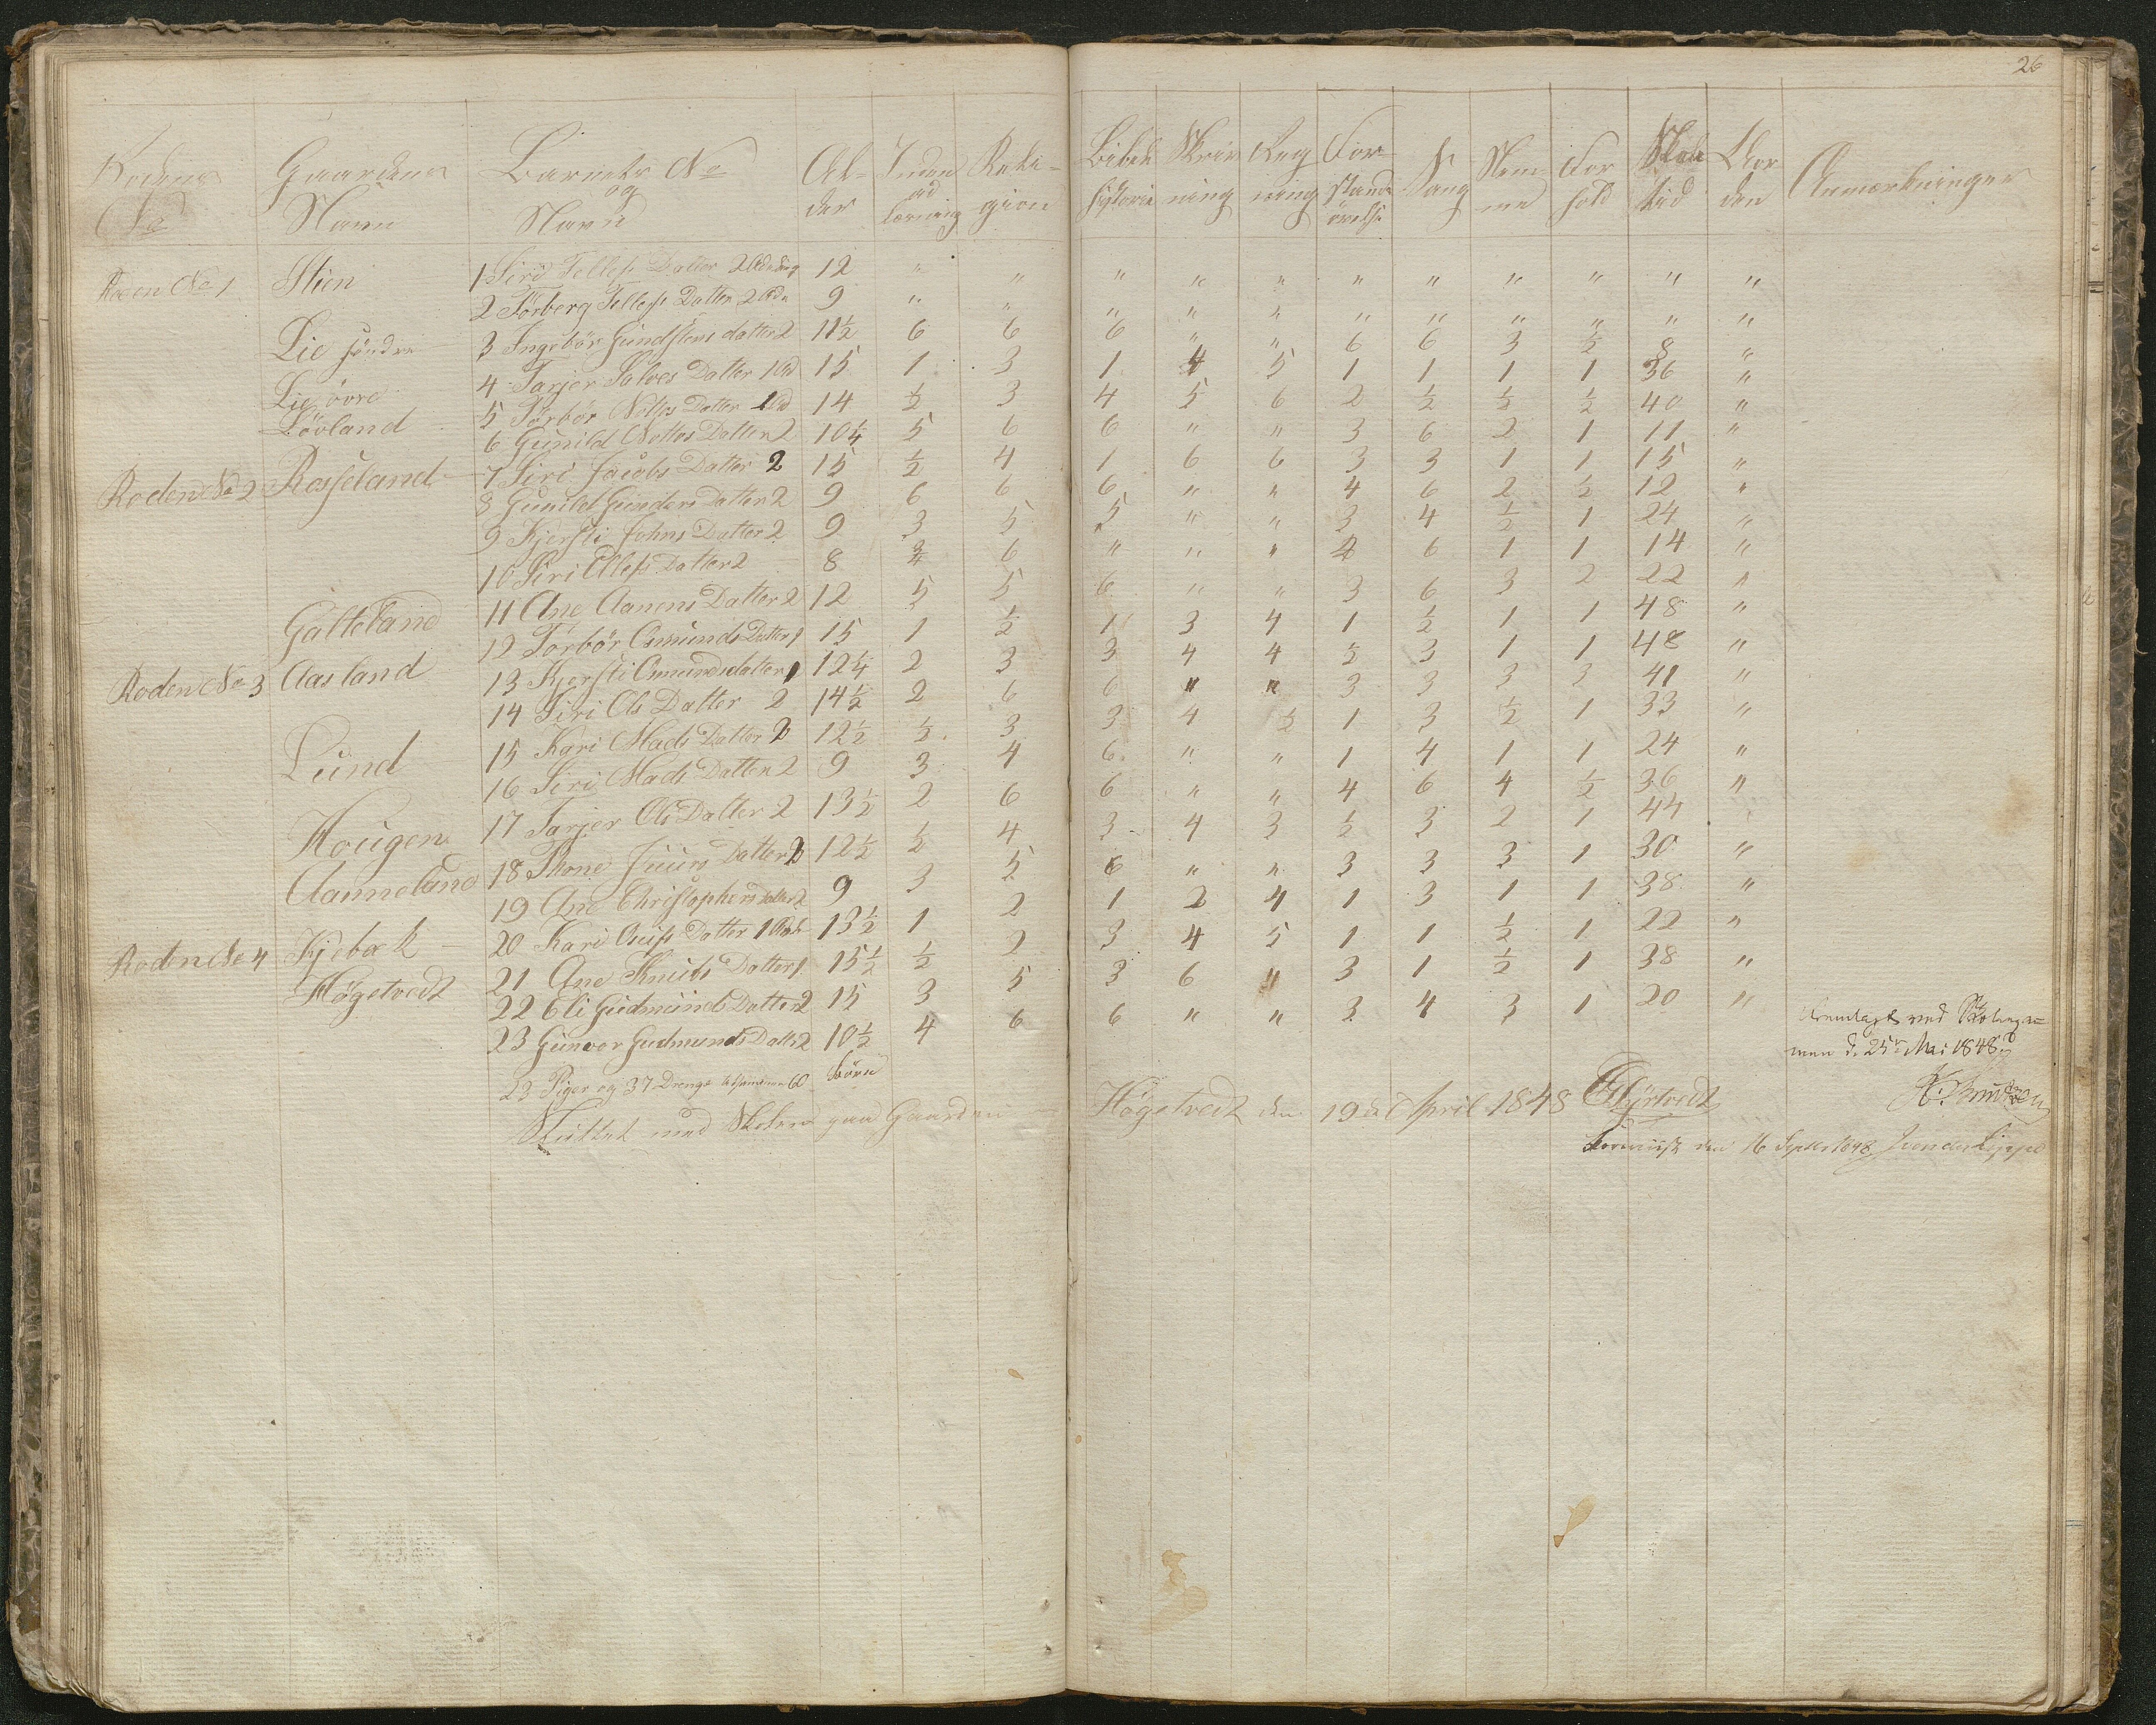 26
Rodens No Gaardens Navn Barnets No og Navn Al-der Inden ad læsning Reli-gion Bibel historie Skriv ning Reg ning For-stands övelse Sang Nem-me For hold Skole tid Orden Anmærkninger
Roden No 1 Stien 1 Siri Tellefs Datter 2 12 " " " " " " " " " " "
2 Torberg Tellefs Datter 2 9 " " " " " " " " " " "
Lie söndre 3 Ingebör Gundstens datter 2 11½ 6 6 6 " " 6 6 3 ½ 8 "
Lie övre 4 Tarjer Salves Datter 1 15 1 3 1 4 5 1 1 1 1 36 "
Lövland 5 Torbör Datter 1 14 ½ 3 4 5 6 2 ½ ½ ½ 40 "
6 Gunild Datter 2 10¼ 5 6 6 " " 3 6 2 1 11 "
Roden No 2 Rosseland 7 Siri Jacobs Datter 2 15 ½ 4 1 6 6 3 3 1 1 15 "
8 Gunild Gunders Datter 2 9 6 6 6 " " 4 6 2 ½ 12 "
9 Kjersti Johns Datter 2 9 3 5 5 " " 3 4 ½ 1 24 "
10 Siri Datter 2 8 6 " " " 4 6 1 1 14 "
Galteland 11 Ane Aanens Datter 2 12 5 5 6 " " 3 6 3 2 22 "
12 Torbör Omunds Datter 1 15 1 ½ 1 3 4 1 ½ 1 1 48 "
Roden No 3 Aasland 13 Kjersti Omundsdatter 1 12¼ 2 3 3 4 4 ½ 3 1 1 48 "
14 Siri Ols Datter 2 14½ 2 6 6 " " 3 3 3 3 41 "
Lund 15 Kari Mads Datter 2 12½ ½ 3 3 4 ½ 1 3 ½ 1 33 "
16 Siri Mads Datter 2 9 3 4 6 " " 1 4 1 1 24 "
Hougen 17 Tarjer Ols Datter 2 13½ 2 6 6 " " 4 6 4 ½ 36 "
Aanneland 18 Thone Juurs Datter 2 12½ ½ 4 3 4 3 ½ 3 2 1 44 "
19 Ane Christophers datter 2 9 3 5 6 " " 3 3 3 1 30 "
Roden No 4 Kjebæk 20 Kari Datter 1 13½ 1 2 1 2 4 1 3 1 1 38 "
Högetvedt 21 Ane Knuds Datter 1 15½ ½ 2 3 4 5 1 1 ½ 1 22 "
22 Eli Gudmunds Datter 2 15 3 5 3 6 " 3 1 ½ 1 38 "
23 Gunvor Gudmunds Datter 2 10½ 4 6 6 " " 3 4 3 1 20 "
23 Piger og 37 Drenge tilsammen 60 Börn
Sluttet med Skolen paa Gaarden Högetvedt den 19de April 1848
Fremlagt ved
men d. 25de Mai 1848
Foreviist den 16 Septbr 1848